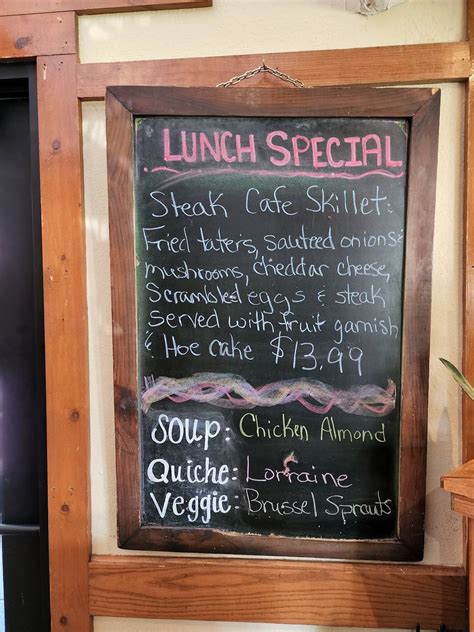 LUNCH SPECIAL
Steak Cafe Skillet:
Fried taters, sauteed onions &
mushrooms, cheddar cheese,
Scrambled eggs & steak
served with fruit garnish
& Hoe cake $13.99
Soup: Chicken Almond
Quiche: Lorraine
Veggie: Brussel Sprouts